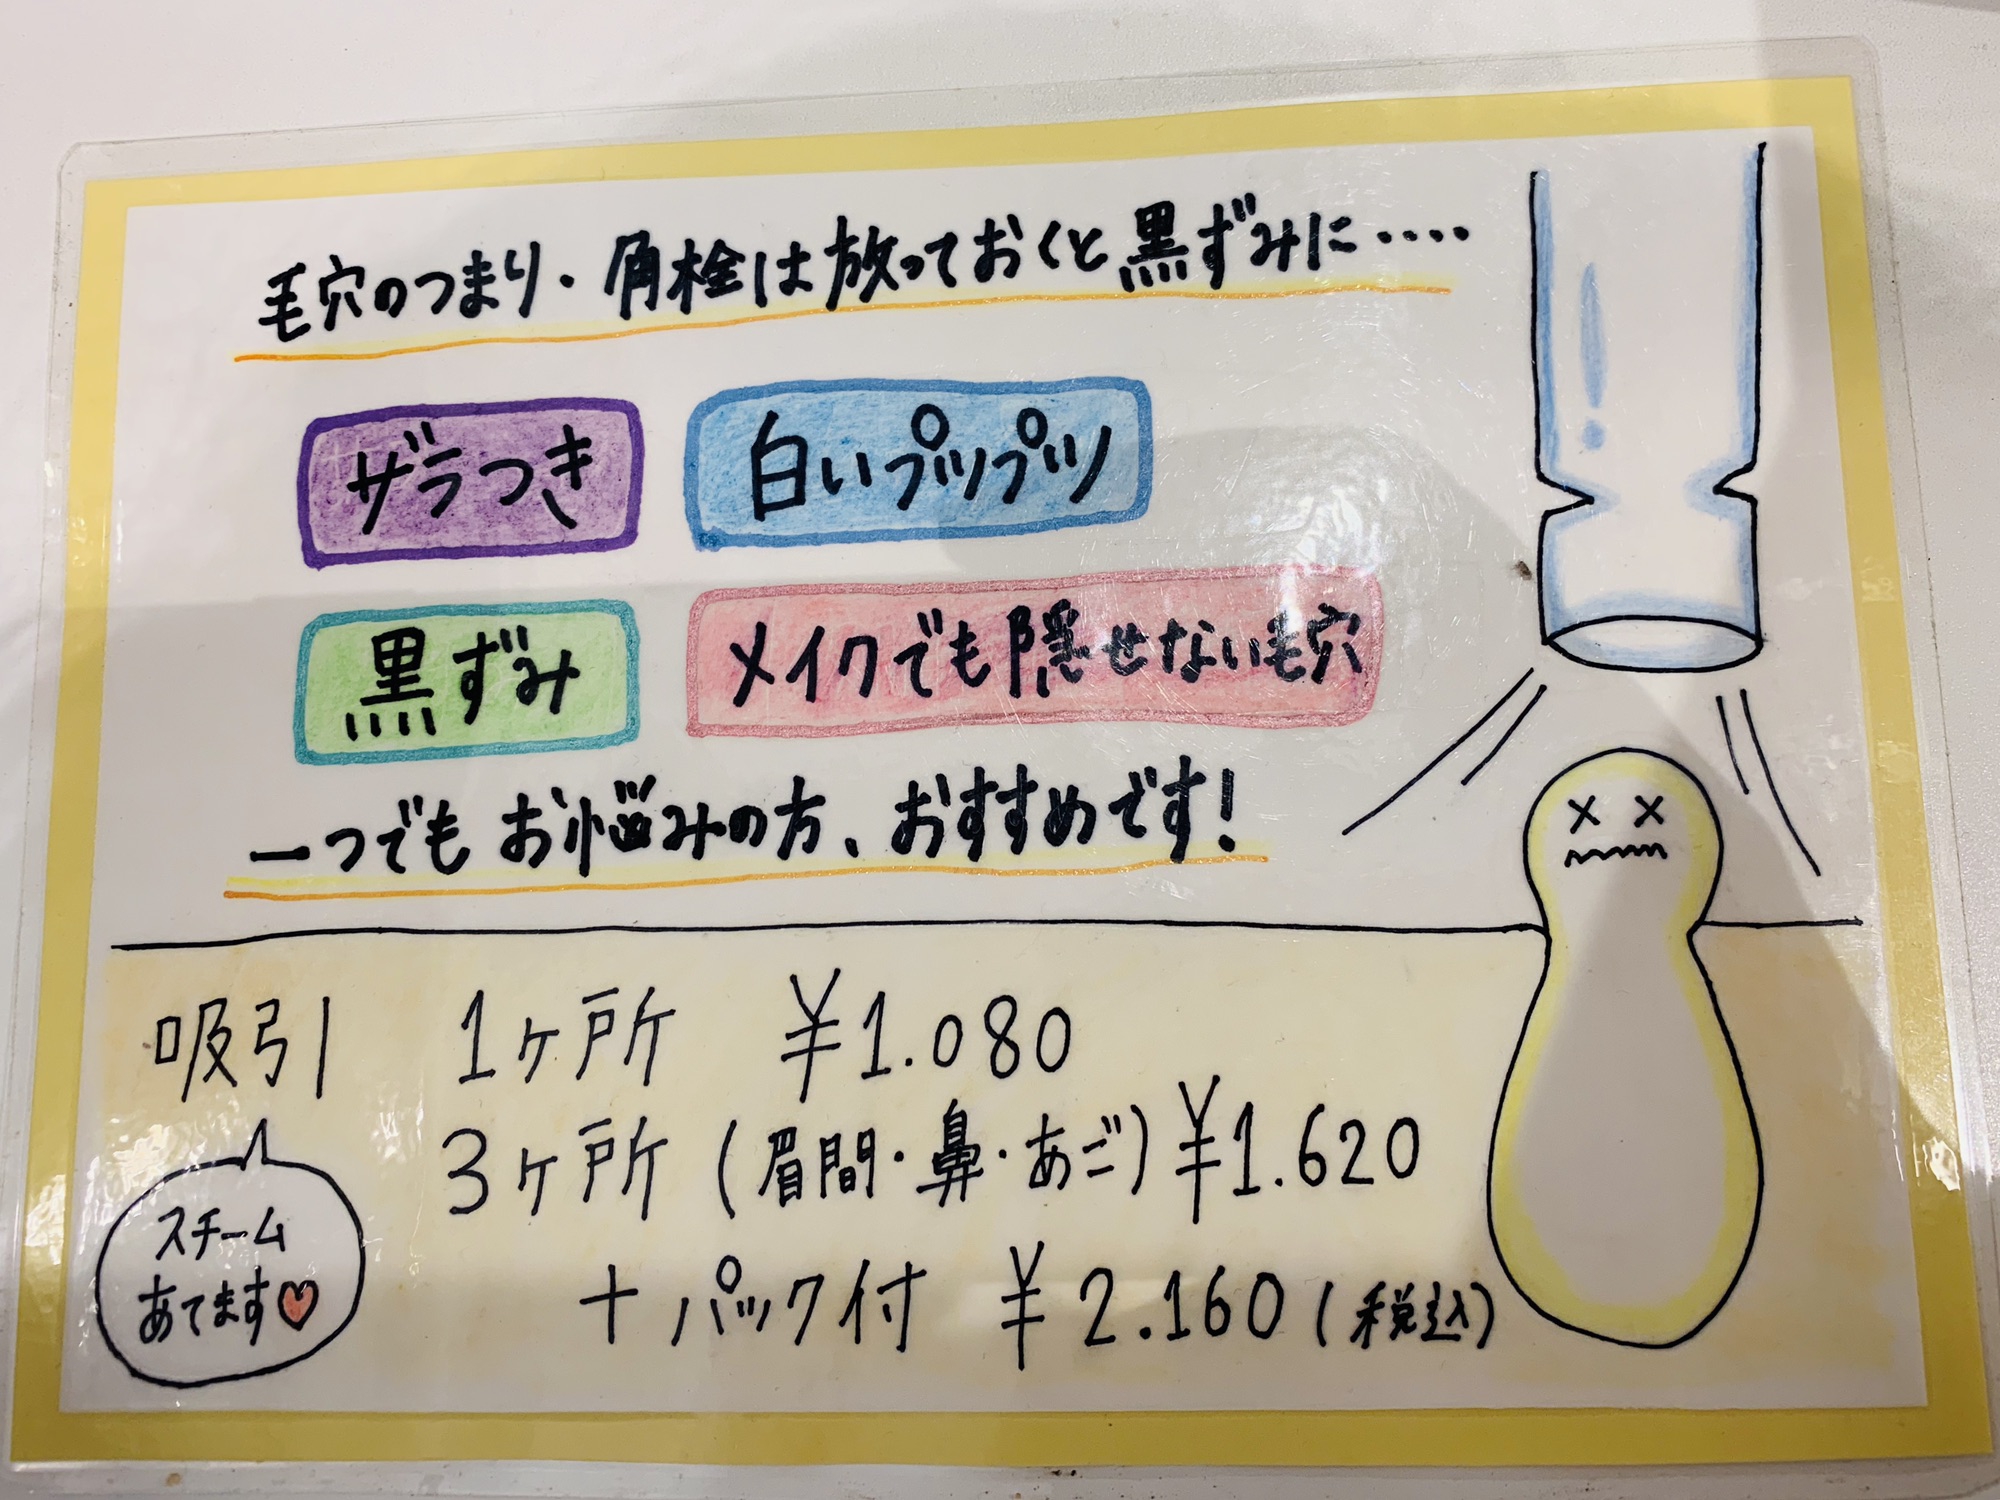 毛穴のつまり・角栓は放っておくと黒ずみに‥‥
ザラつき
白いプツプツ
黒ずみ
メイクでも隠せない毛穴
一つでもお悩みの方、おすすめです！
吸引 1ヶ所 ¥1.080
3ヶ所 (眉間・鼻・あご) ¥1.620
+ パック付 ¥2.160 (税込)
スチーム
あてます♡